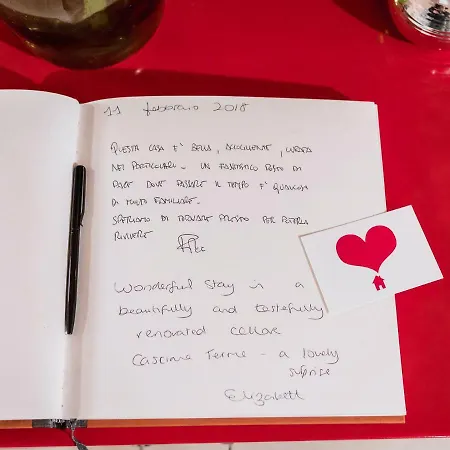 11 febbraio 2018
QUESTA CASA E' BELLA, ACCOGLIENTE, CURATA
NEI PARTICOLARI. UN FANTASTICO POSTO DI
PACE DOVE PASSARE IL TEMPO E' QUALCOSA
DI MOLTO FAMILIARE.
SPERIAMO DI TORNARE PRESTO PER POTERLA
RIVIVERE
Wonderful stay in a
beautifully and tastefully
renovated
Casciana Terme - a lovely
suprise
Elizabeth